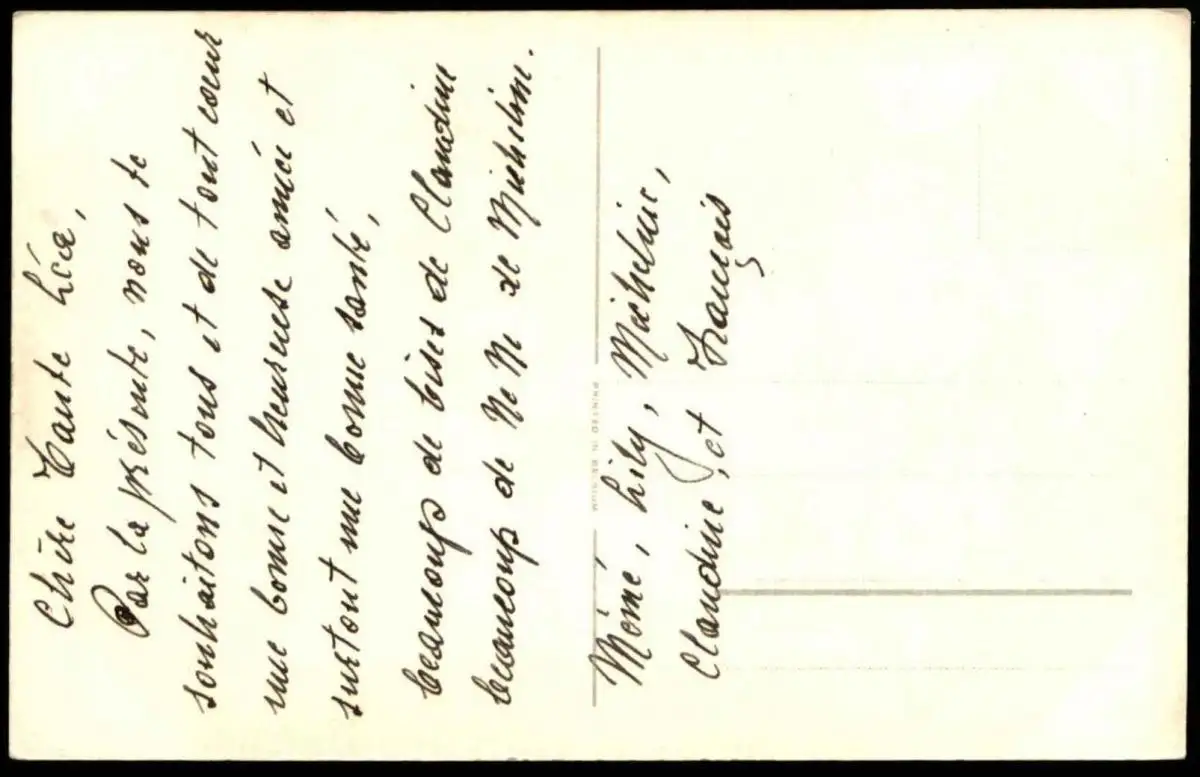 Chère Tante Léa,
Par la présente, nous te
souhaitons tous et de tout cœur
une bonne et heureuse année et
surtout une bonne santé,
beaucoup de bises de Claudine
beaucoup de Ne Ne de Micheline.
Mémé, Lily, Micheline,
Claudine, et François
PRINTED IN BELGIUM